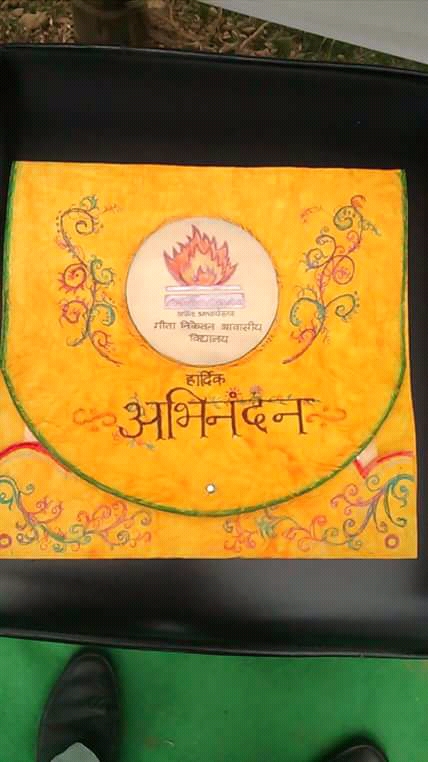 गीता निकेतन आवासीय
विद्यालय
हार्दिक
अभिनंदन